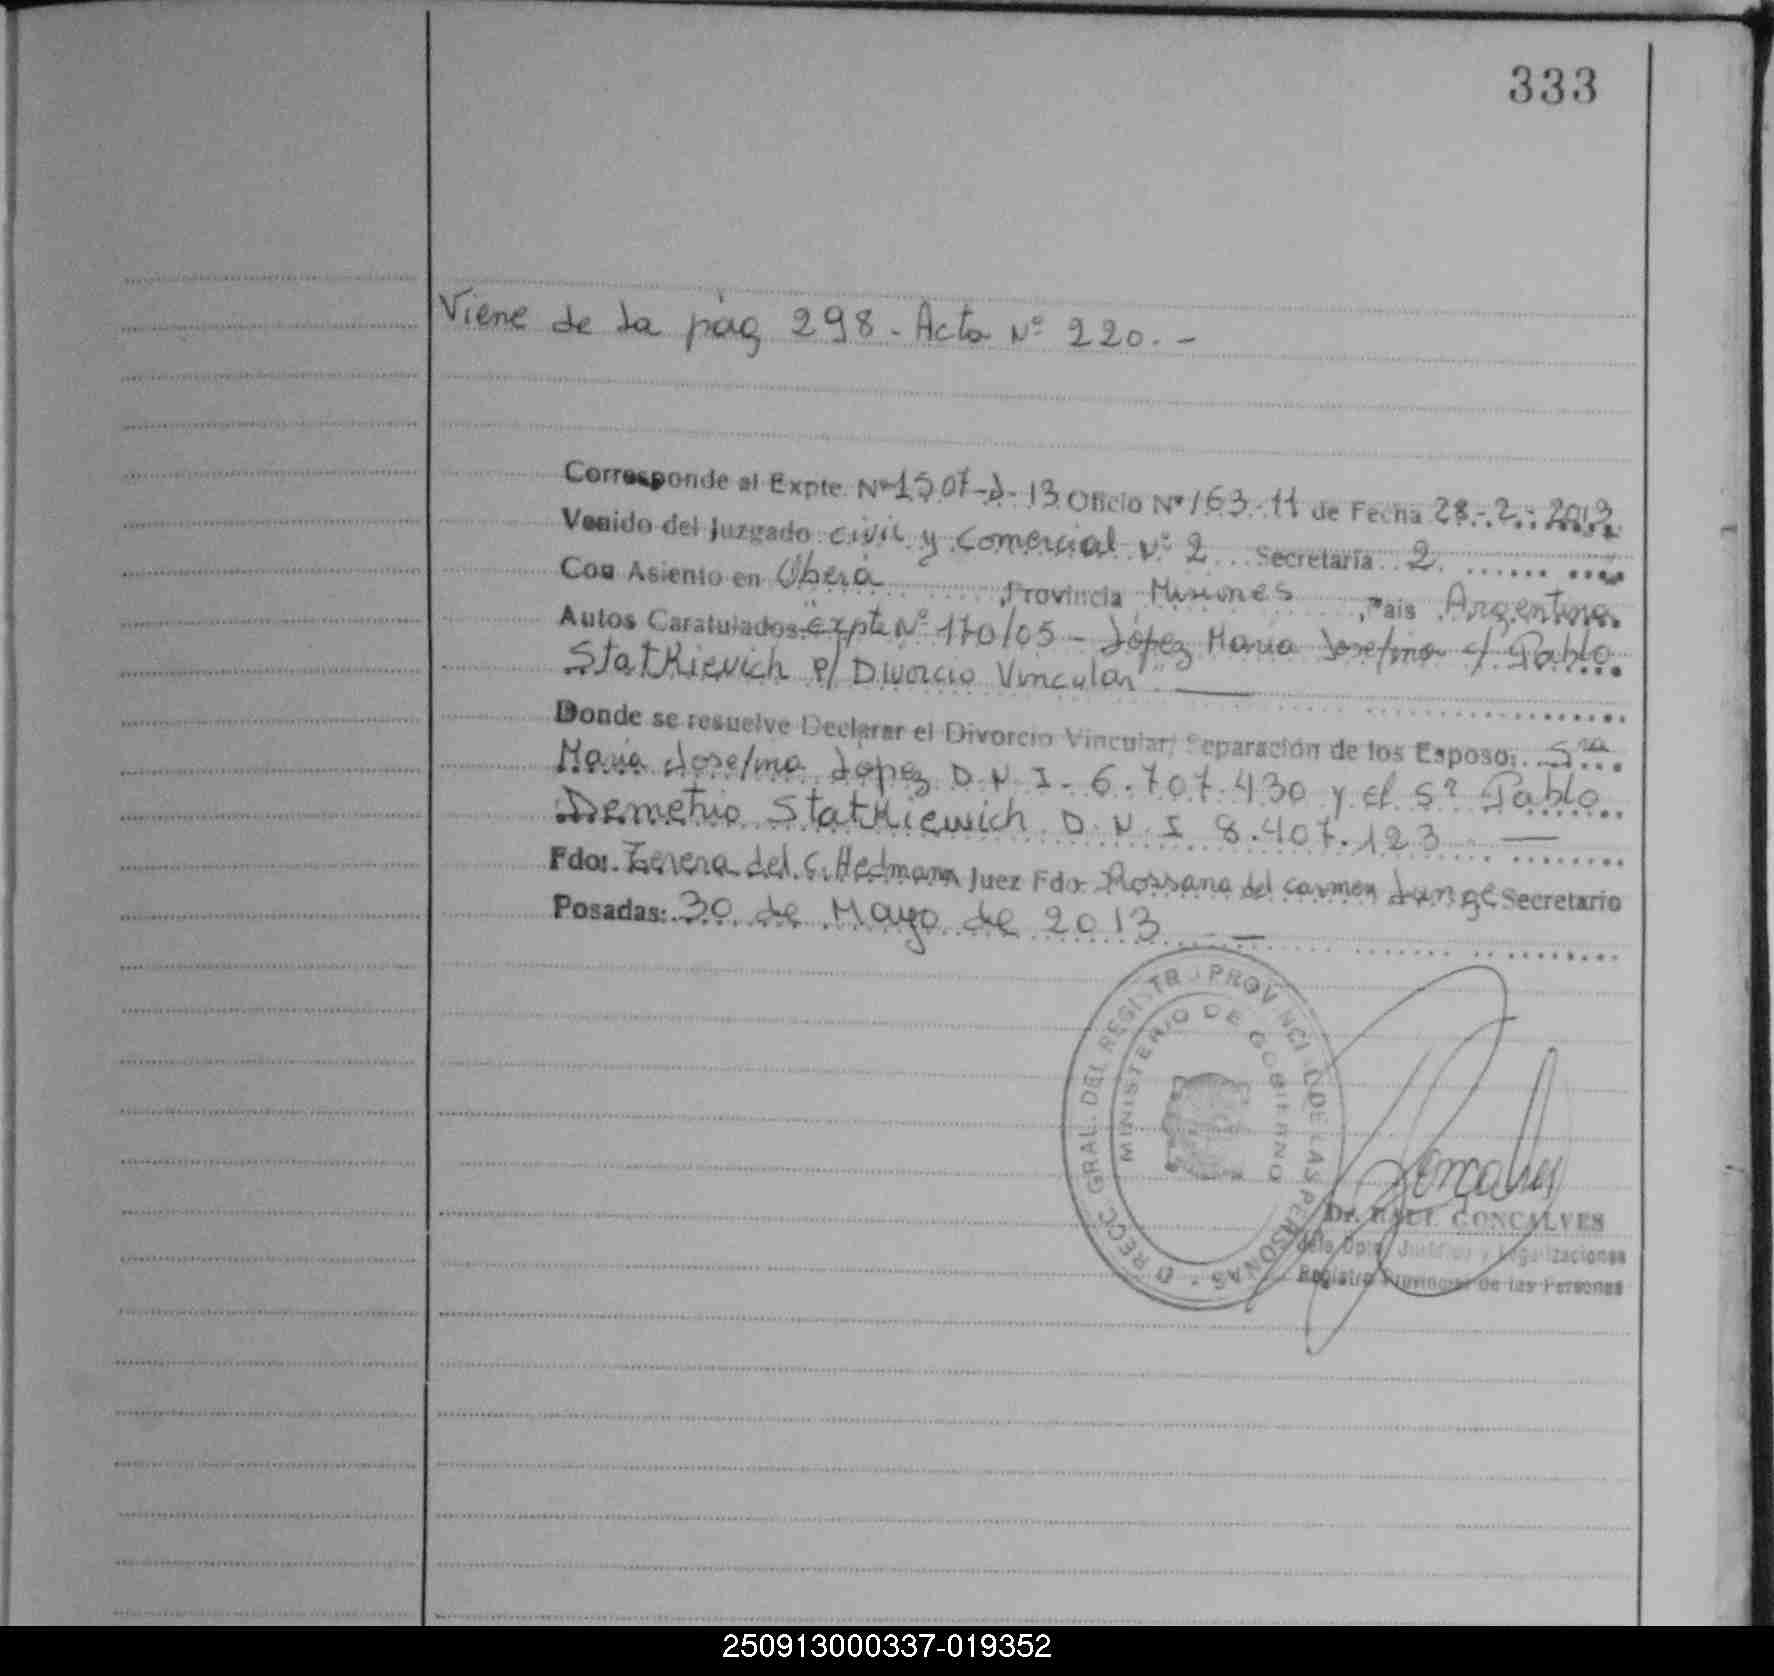 333
Viene de la pág 298 - Acta Nº 220. -
Corresponde al Expte. Nº 1507-J-13 Oficio Nº 163-11 de Fecha 28-2-2013
Venido del Juzgado civil y Comercial Nº 2 Secretaría 2
Con Asiento en Oberá, Provincia Misiones, Pais Argentina.
Autos Caratulados Expte Nº 170/05 - López María Josefina c/ Pablo
Statkievich p/ Divorcio Vincular
Donde se resuelve Declarar el Divorcio Vincular/ Separación de los Esposo: Sra
María Josefina López D.N.I. 6.707.430 y el Sr Pablo
Demetrio Statkiewich D.N.I 8.407.123
Fdo: del C. Hedmann Juez Fdo Rossana del Carmen Junge Secretario
Posadas: 30 de Mayo de 2013
DIRECC. GRAL. DEL REGISTRO PROVINCIAL DE LAS PERSONAS
MINISTERIO DE GOBIERNO
Dr. RAUL GONCALVES
Jefe Dpto. Jurídico y Legalizaciones
Registro Provincial de las Personas
250913000337-019352